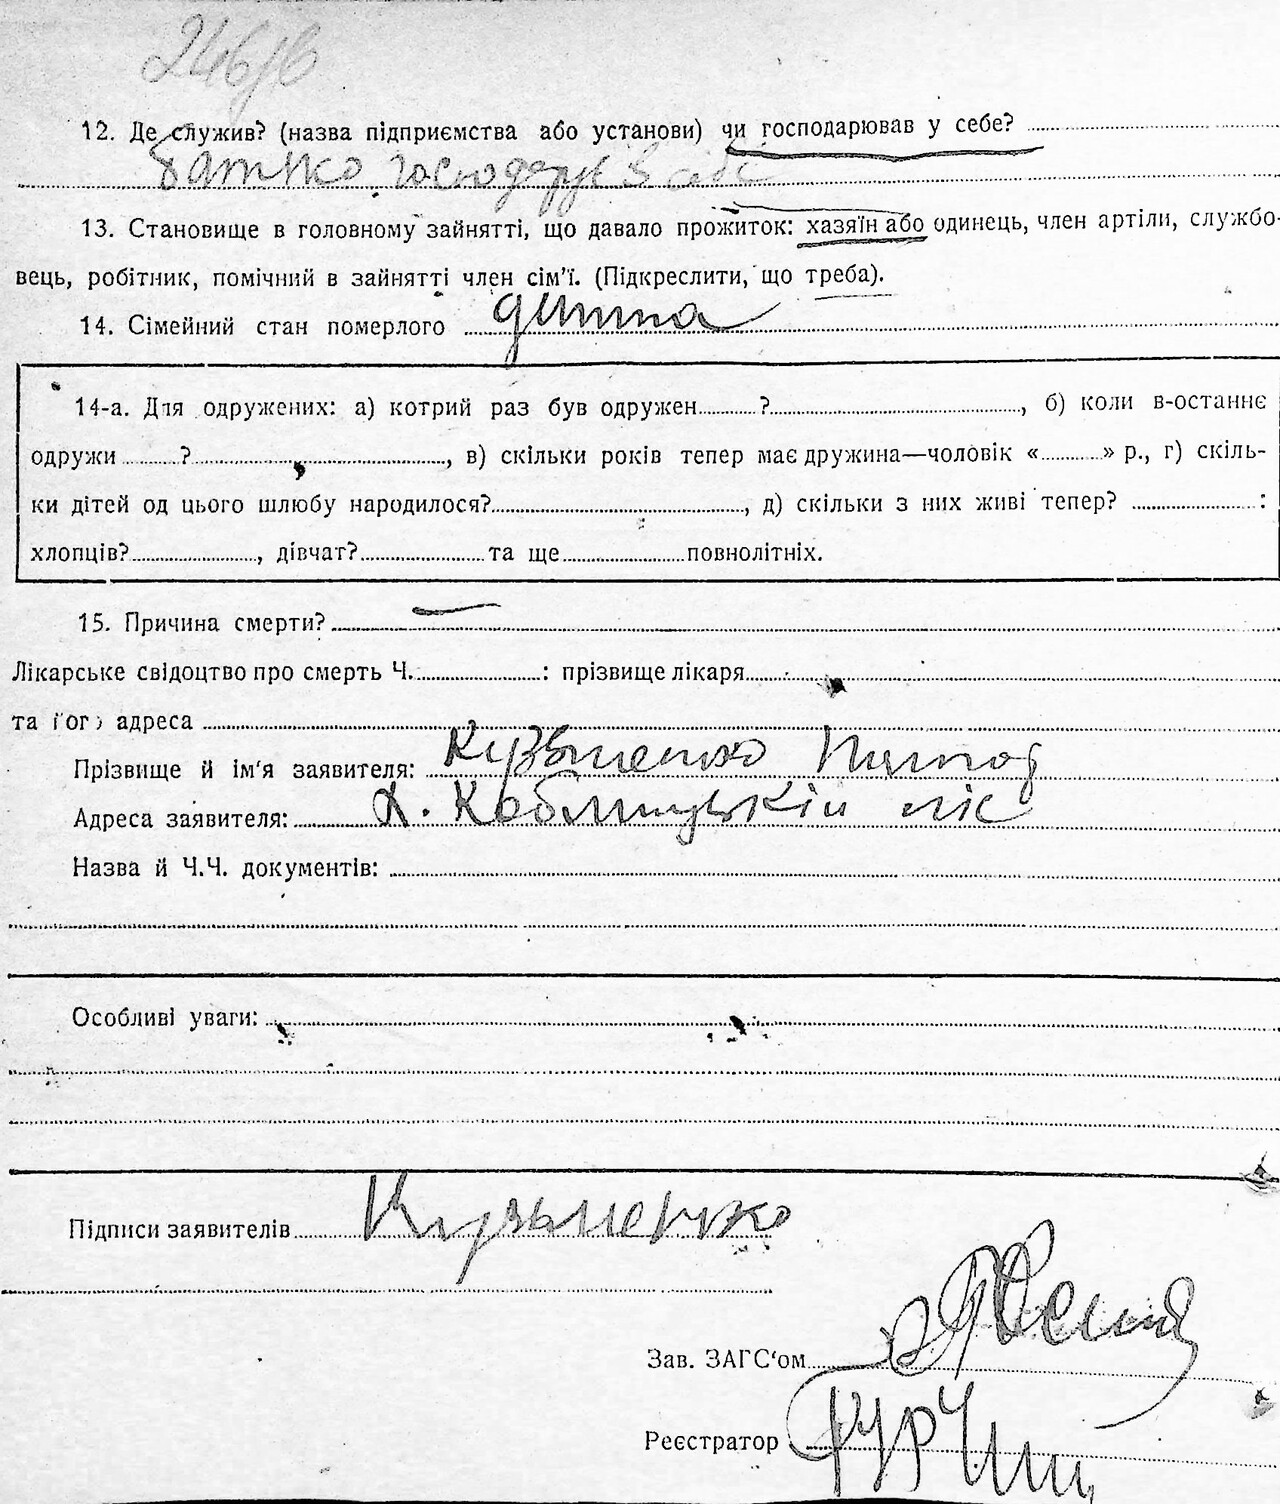 246/в
12. Де служив? (назва підприємства або установи) чи господарював у себе?
батько господарує в себе
13. Становище в головному зайнятті, що давало прожиток: хазяїн або одинець, член артіли, службо-
вець, робітник, помічний в зайнятті член сім'ї. (Підкреслити, що треба).
14. Сімейний стан померлого дитина
14-а. Для одружених: а) котрий раз був одружен ?, б) коли в-останнє
одружи ?, в) скільки років тепер має дружина—чоловік « » р., г) скіль-
ки дітей од цього шлюбу народилося?, д) скільки з них живі тепер? :
хлопців?, дівчат? та ще повнолітніх.
15. Причина смерти? —
Лікарське свідоцтво про смерть Ч. : прізвище лікаря
та його адреса
Прізвище й ім'я заявителя: Кузьменко
Адреса заявителя: Х. ліс
Назва й Ч.Ч. документів:
Особливі уваги:
Підписи заявителів Кузьменко
Зав. ЗАГС'ом
Реєстратор